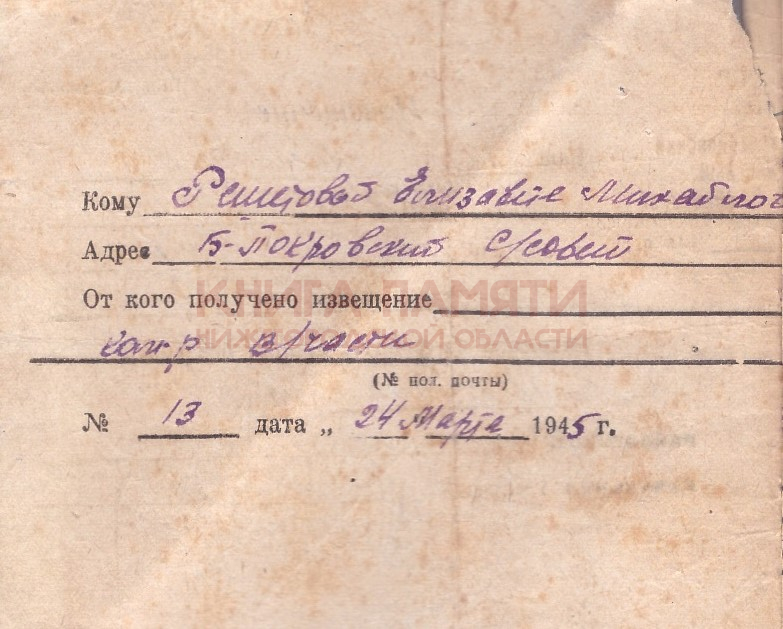 Кому Решетовой Елизавете Михайлов
Адрес Б-Покровский с/совет
КНИГА ПАМЯТИ
От кого получено извещение
НИЖЕГОРОДСКОЙ ОБЛАСТИ
в/части
(№ пол. почты)
№ 13 дата „ 24 Марта 1945 г.